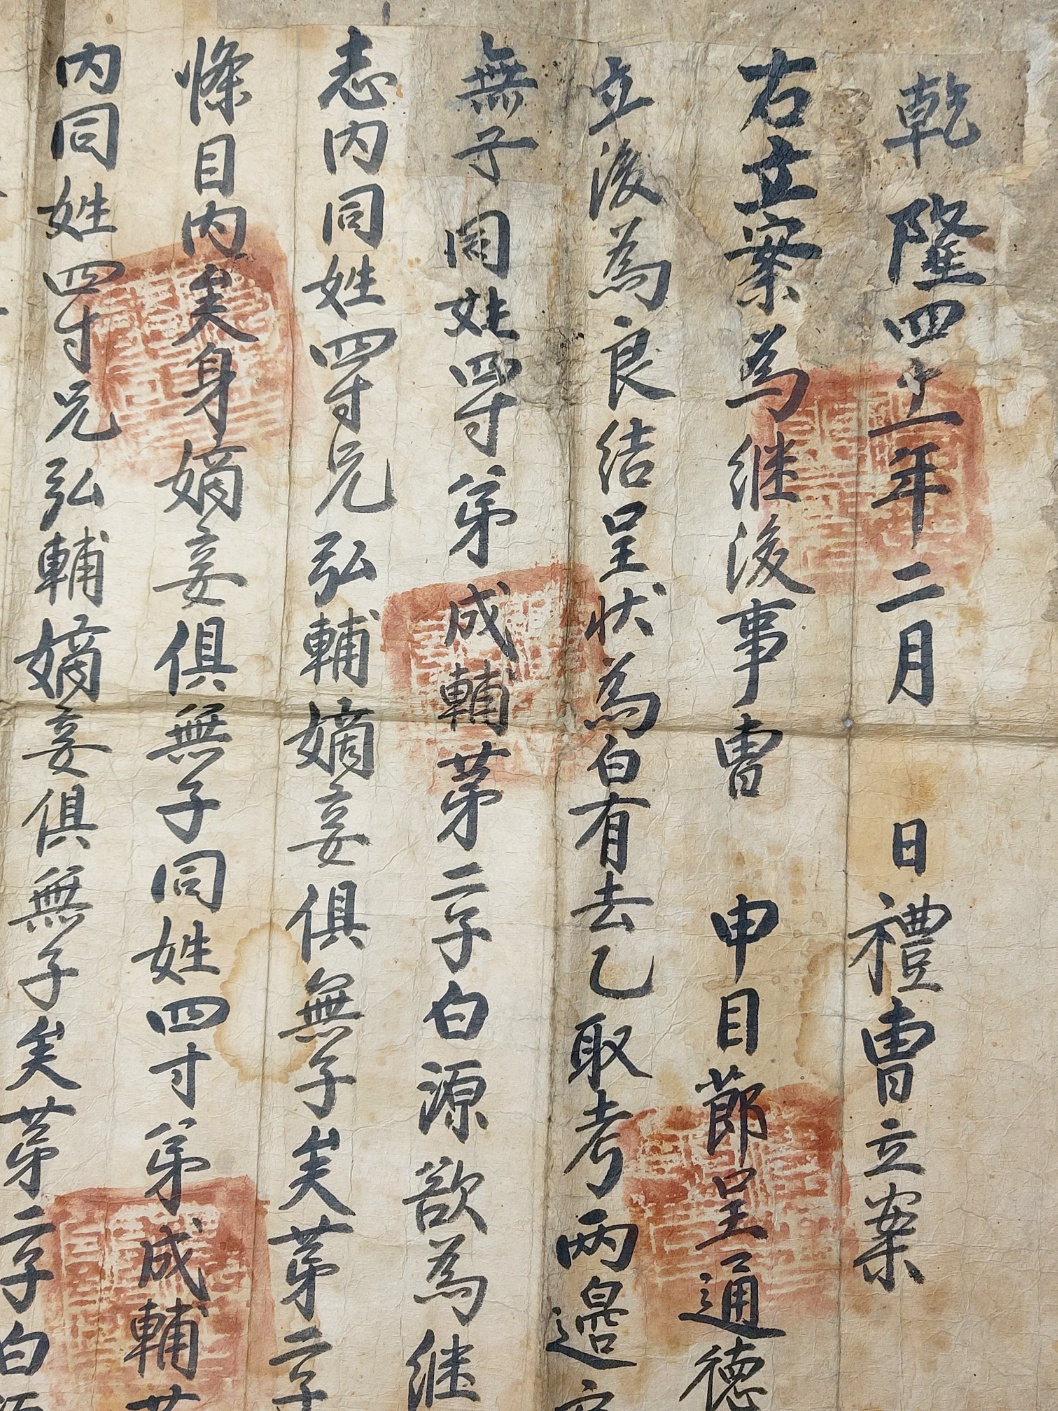 乾隆四十一年二月 日禮曺立案
右立案為継後事曺 申目節呈通德
立後為良結呈狀為白有去乙取考両邉
無子同姓四寸弟成輔苐二子白源欲為継
志内同姓四寸兄弘輔嫡妾俱無子矣苐二子
條目内矣身嫡妾俱無子同姓四寸弟成輔苐
内同姓四寸兄弘輔嫡妾俱無子矣苐二子白源